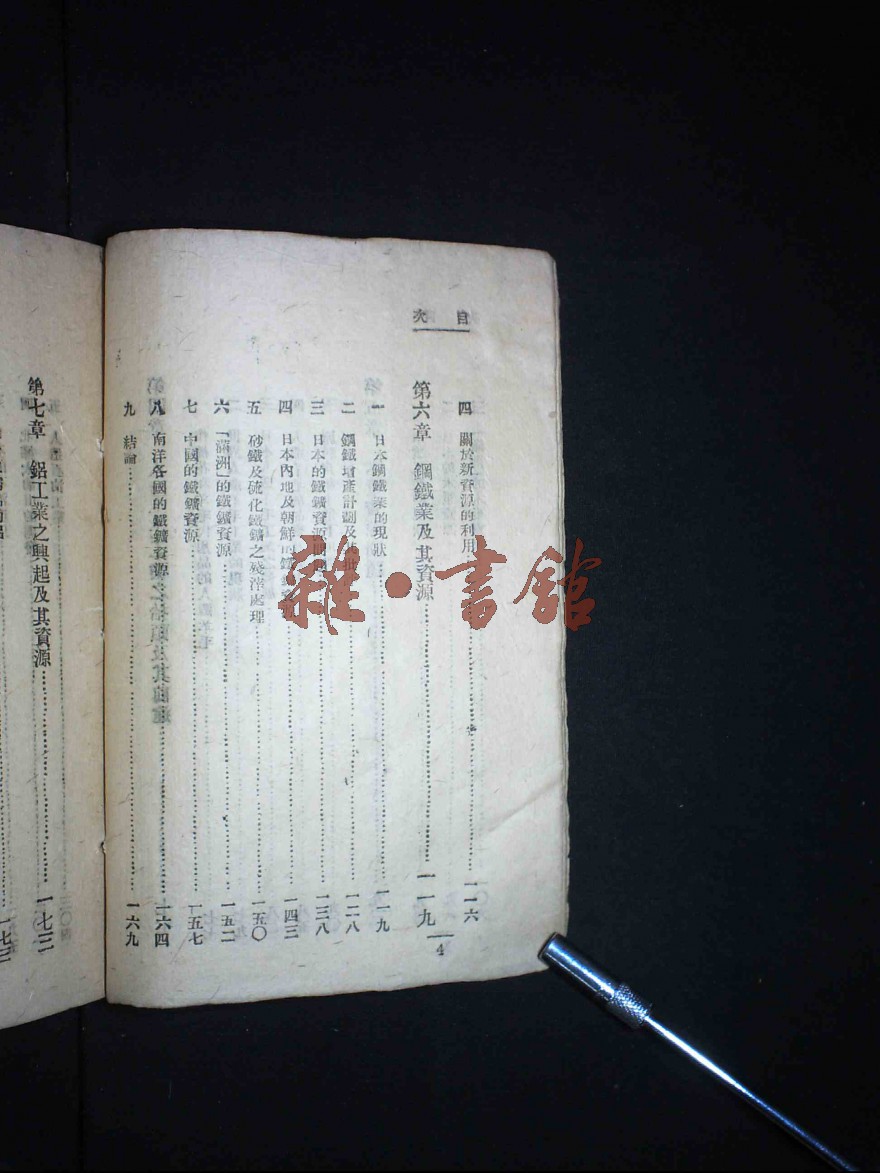 目次
四 關於新資源的利用……一一六
第六章 鋼鐵業及其資源……一一九
一 日本鋼鐵業的現狀……一一九
二 鋼鐵增產計劃及……一二八
三 日本的鐵鑛資源……一三八
四 日本內地及朝鮮的鐵鑛……一四三
五 砂鐵及硫化鐵鑛之殘滓處理……一五〇
六 「滿洲」的鐵鑛資源……一五二
七 中國的鐵鑛資源……一五七
八 南洋各國的鐵鑛資源……一六四
九 結論……一六九
4
第七章 鋁工業之興起及其資源……一七三
雜·書館